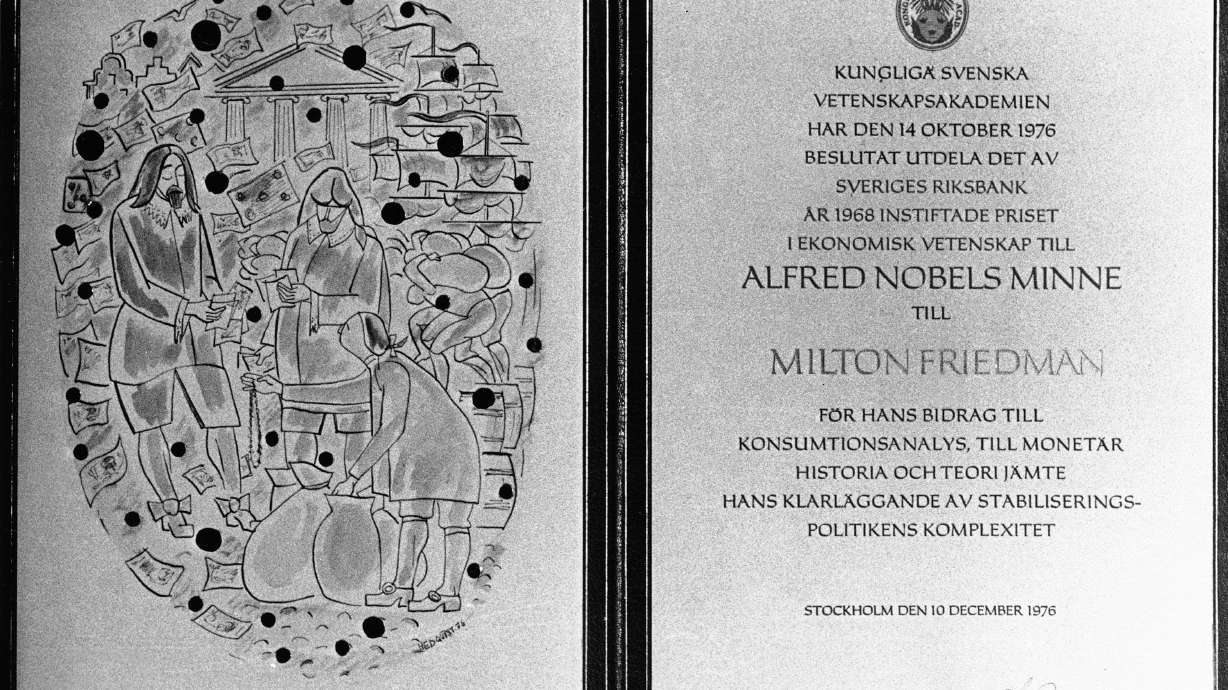 HEDQVIST 76
KUNGLIGA SVENSKA
VETENSKAPSAKADEMIEN
HAR DEN 14 OKTOBER 1976
BESLUTAT UTDELA DET AV
SVERIGES RIKSBANK
ÅR 1968 INSTIFTADE PRISET
I EKONOMISK VETENSKAP TILL
ALFRED NOBELS MINNE
TILL
MILTON FRIEDMAN
FÖR HANS BIDRAG TILL
KONSUMTIONSANALYS, TILL MONETÄR
HISTORIA OCH TEORI JÄMTE
HANS KLARLÄGGANDE AV STABILISERINGS-
POLITIKENS KOMPLEXITET
STOCKHOLM DEN 10 DECEMBER 1976